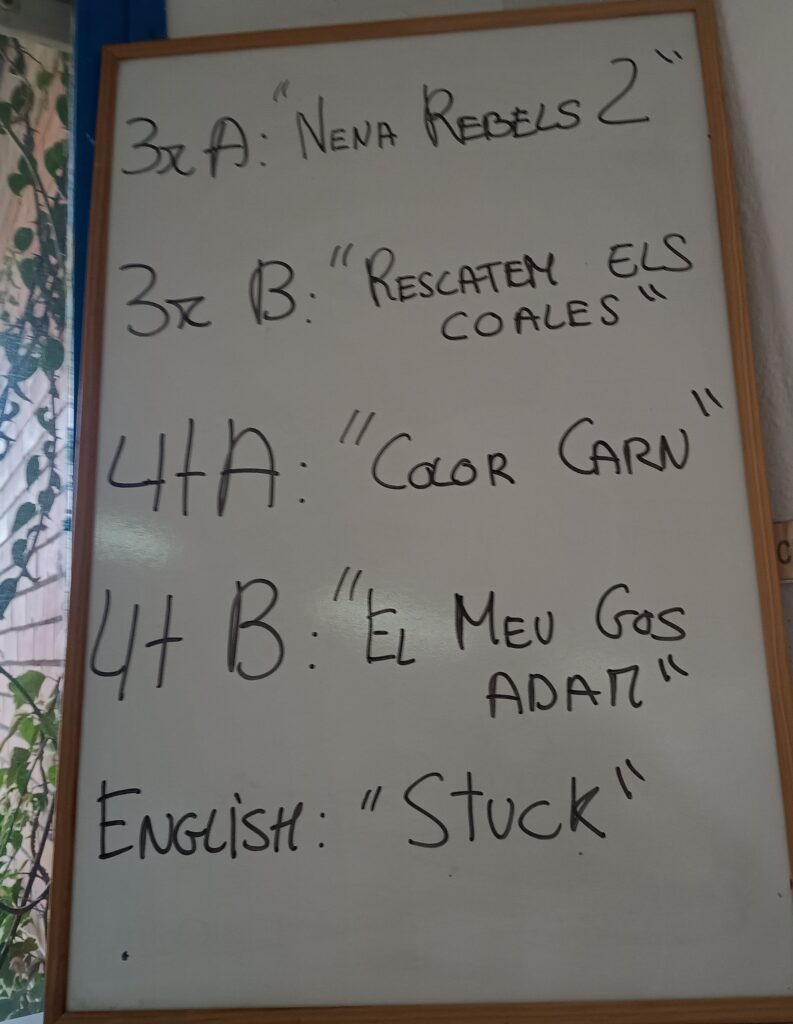 3r A: "NENA REBELS 2"
3r B: "RESCATEM ELS
COALES"
4t A: "COLOR CARN"
4t B: "EL MEU GOS
ADAM"
ENGLISH: "STUCK"
C